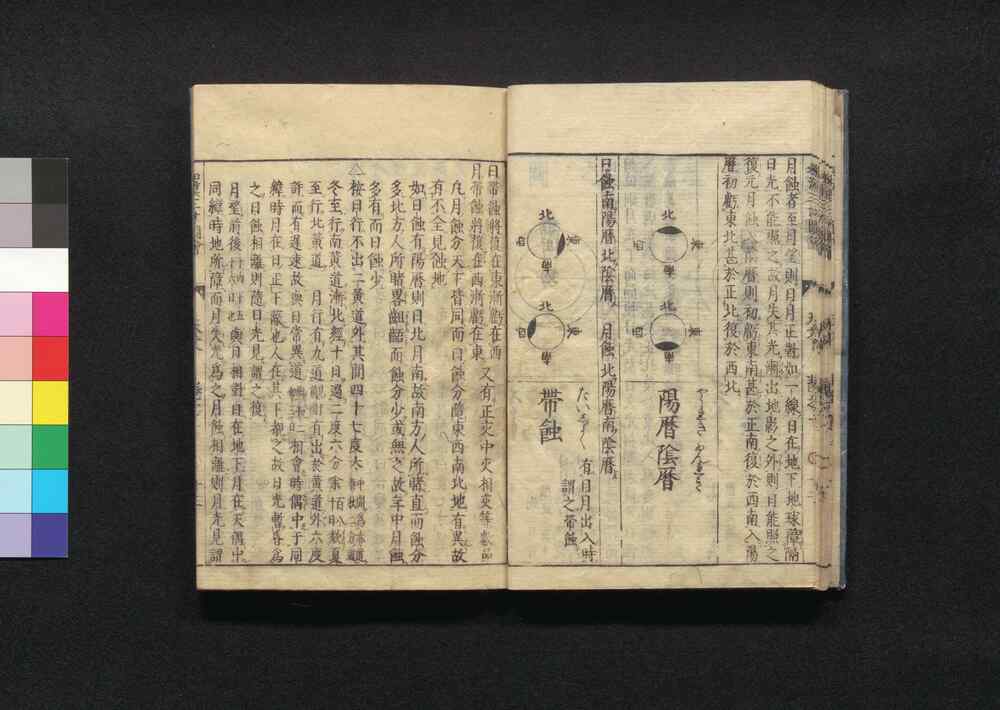 月蝕者至月望則日月正對如一線日在地下地球障隔
日光不能照之故月失其光漸出地影之外則日能照之
復元月蝕入陰曆則初虧東南甚於正南復於西南入陽
曆初虧東北甚於正北復於西北
陽曆陰曆
北
北
日蝕南陽曆北陰曆 月蝕北陽曆南陰曆
北
北
帶蝕
たいしよく
有日月出入時
謂之帶蝕
日帶蝕將復在東漸虧在西
月帶蝕將復在西漸虧在東
又有正交中交相交等數品
凡月蝕分天下皆同而日蝕分隨東西南北地有異故
有不全見蝕地
如日蝕有陽曆則日北月南故南方人所睹直而蝕分
多北方人所睹畧齟齬而蝕分少或無之故年中月蝕
多有而日蝕少
△按日行不出二黃道外其間四十七度大
冬至行南黃道漸北經十日過二度六分余
至行北黃道 月行有九道
有出於黃道外六度
許而有遲速故與日常異道
相會時偶中于同
緯時月在日正下蔽也人在其下抑之故日光暫昏為
之日蝕相離則隨日光見謂之後
月望前後行
與日相對日在地下月在天偶中
同緯時地所障而月失光為之月蝕相離則月光見謂